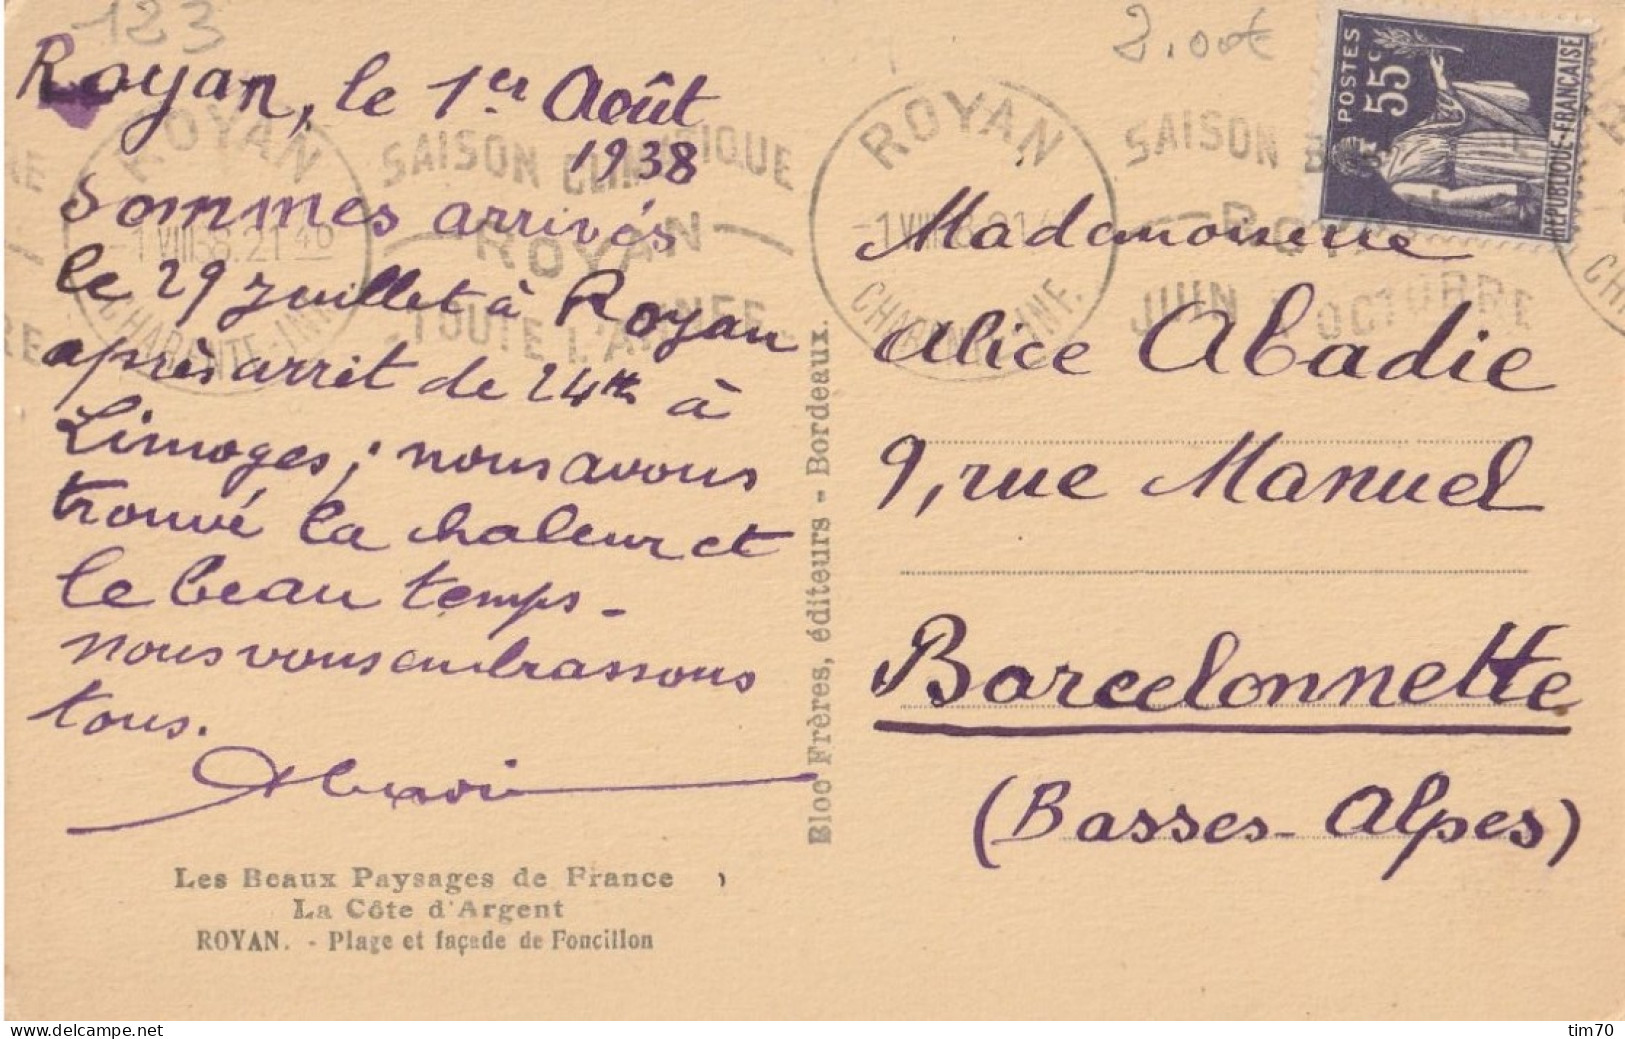 -123
2.00€
Royan, le 1er Août
1938
Sommes arrivés
le 29 Juillet à Royan
après arrêt de 24hs à
Limoges; nous avons
trouvé la chaleur et
le beau temps -
nous vous embrassons
tous.
Les Beaux Paysages de France
La Côte d'Argent
ROYAN. - Plage et façade de Foncillon
Bloc Frères, éditeurs - Bordeaux.
ROYAN
-1 VIII 38. 21 40
CHARENTE-INF.
SAISON CLIMATIQUE
ROYAN
TOUTE L'ANNÉE
ROYAN
CHARENTE-INF.
SAISON
ROYAN
JUIN OCTOBRE
POSTES
55c
REPUBLIQUE-FRANÇAISE
Mademoiselle
Alice Abadie
9, rue Manuel
Barcelonnette
(Basses-Alpes)
tim70